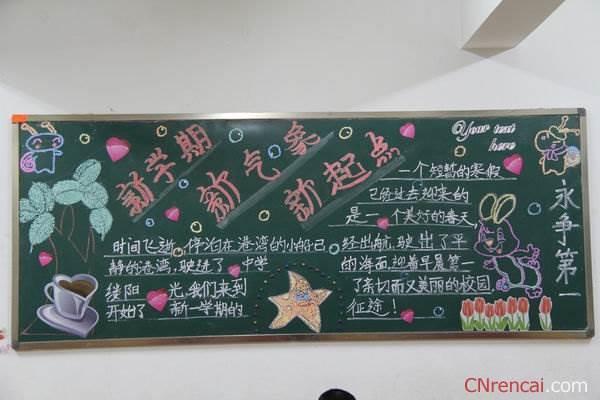 新学期
新气象
新起点
@Your text
here
永争第一
时间飞逝,停泊在港湾的小船已
静的港湾,驶进了 中学
阳 光,我们来到
开始了 新一学期的
一个短暂的寒假
已经过去迎来的
是一个美好的春天,
经出航,驶出了平
的海面,迎着早晨第一
了亲切而又美丽的校园
征途!
CNrencai.com